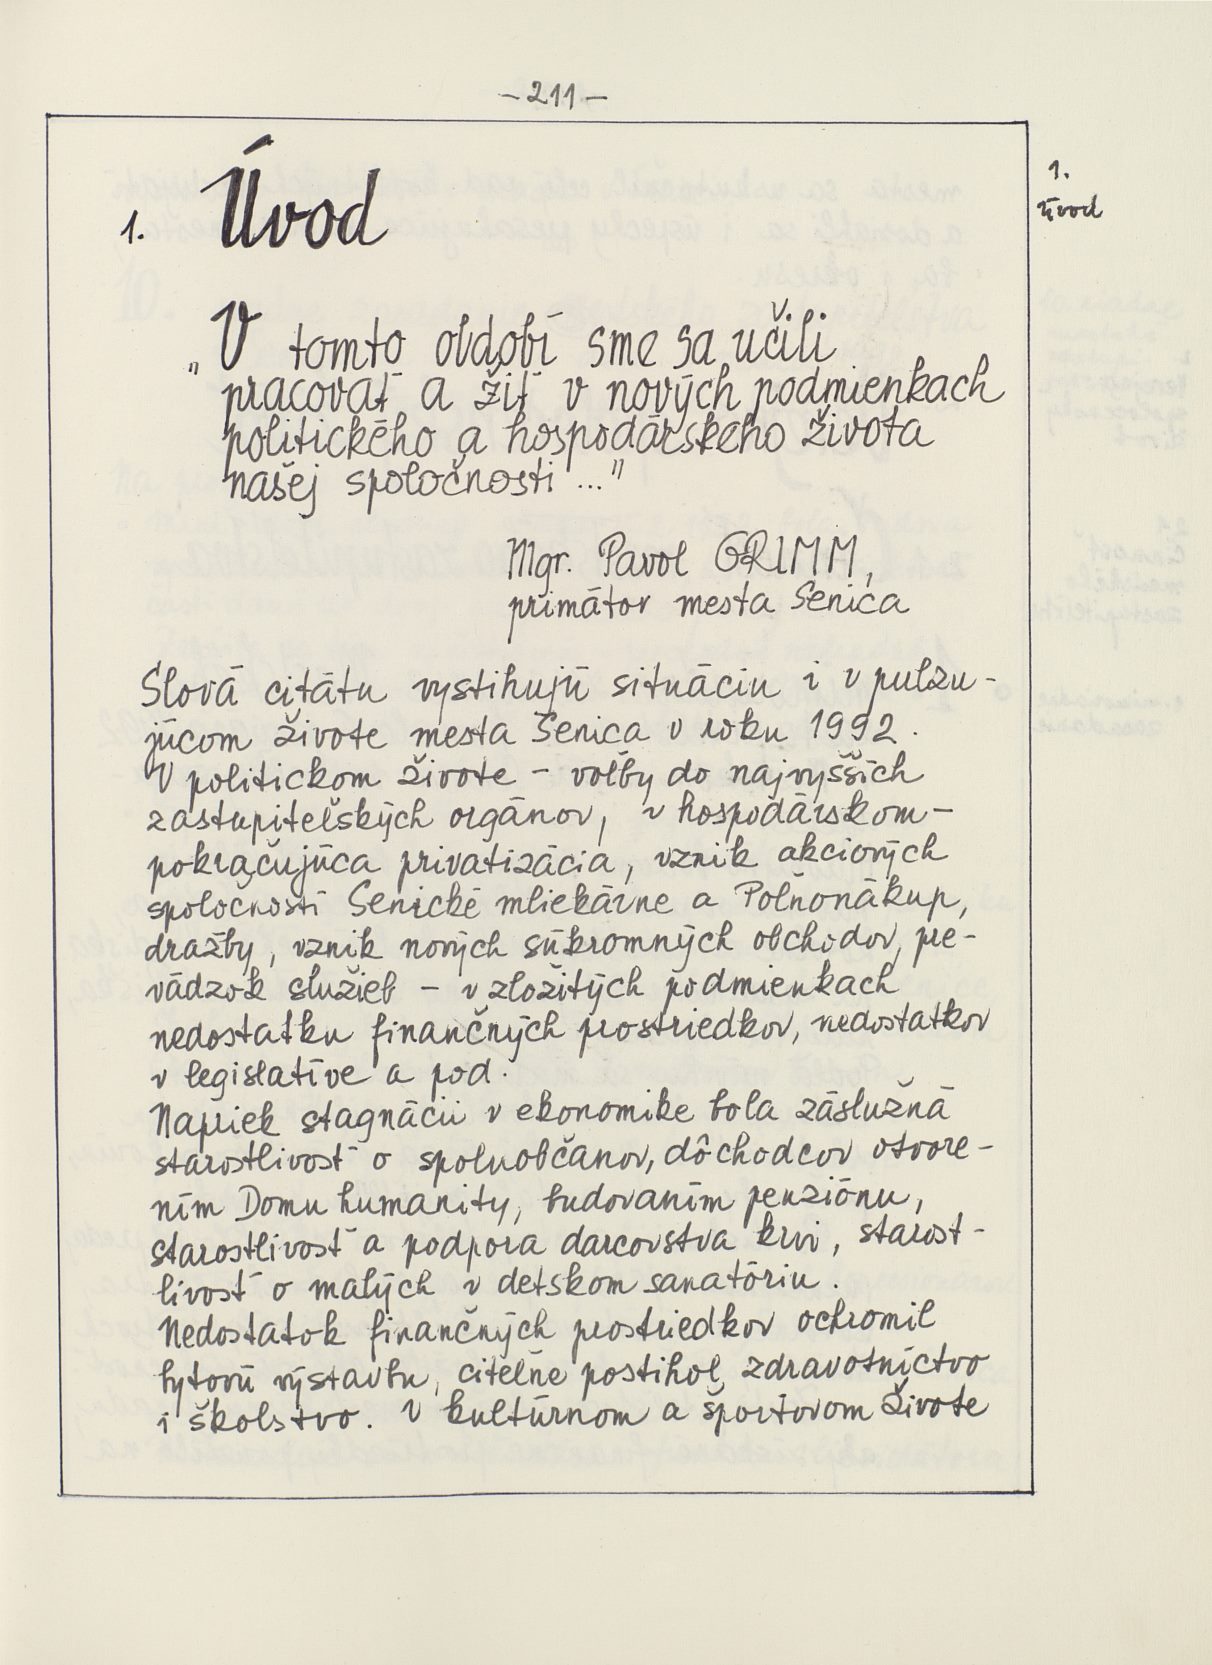 - 211 -
1. Úvod
1.
Úvod
„V tomto období sme sa učili
pracovať a žiť v nových podmienkach
politického a hospodárskeho života
našej spoločnosti ..."
Mgr. Pavol GRIMM,
primátor mesta Senica
Slová citátu vystihujú situáciu i v pulzu-
júcom živote mesta Senica v roku 1992.
V politickom živote - voľby do najvyšších
zastupiteľských orgánov, v hospodárskom -
pokračujúca privatizácia, vznik akciových
spoločností Senické mliekárne a Poľnonákup,
dražby, vznik nových súkromných obchodov, pre-
vádzok služieb - v zložitých podmienkach
nedostatku finančných prostriedkov, nedostatkov
v legislatíve a pod.
Napriek stagnácii v ekonomike bola záslužná
starostlivosť o spoluobčanov, dôchodcov otvore-
ním Domu humanity, budovaním penziónu,
starostlivosť a podpora darcovstva krvi, starost-
livosť o malých v detskom sanatóriu.
Nedostatok finančných prostriedkov ochromil
bytovú výstavbu, citeľne postihol zdravotníctvo
i školstvo. V kultúrnom a športovom živote